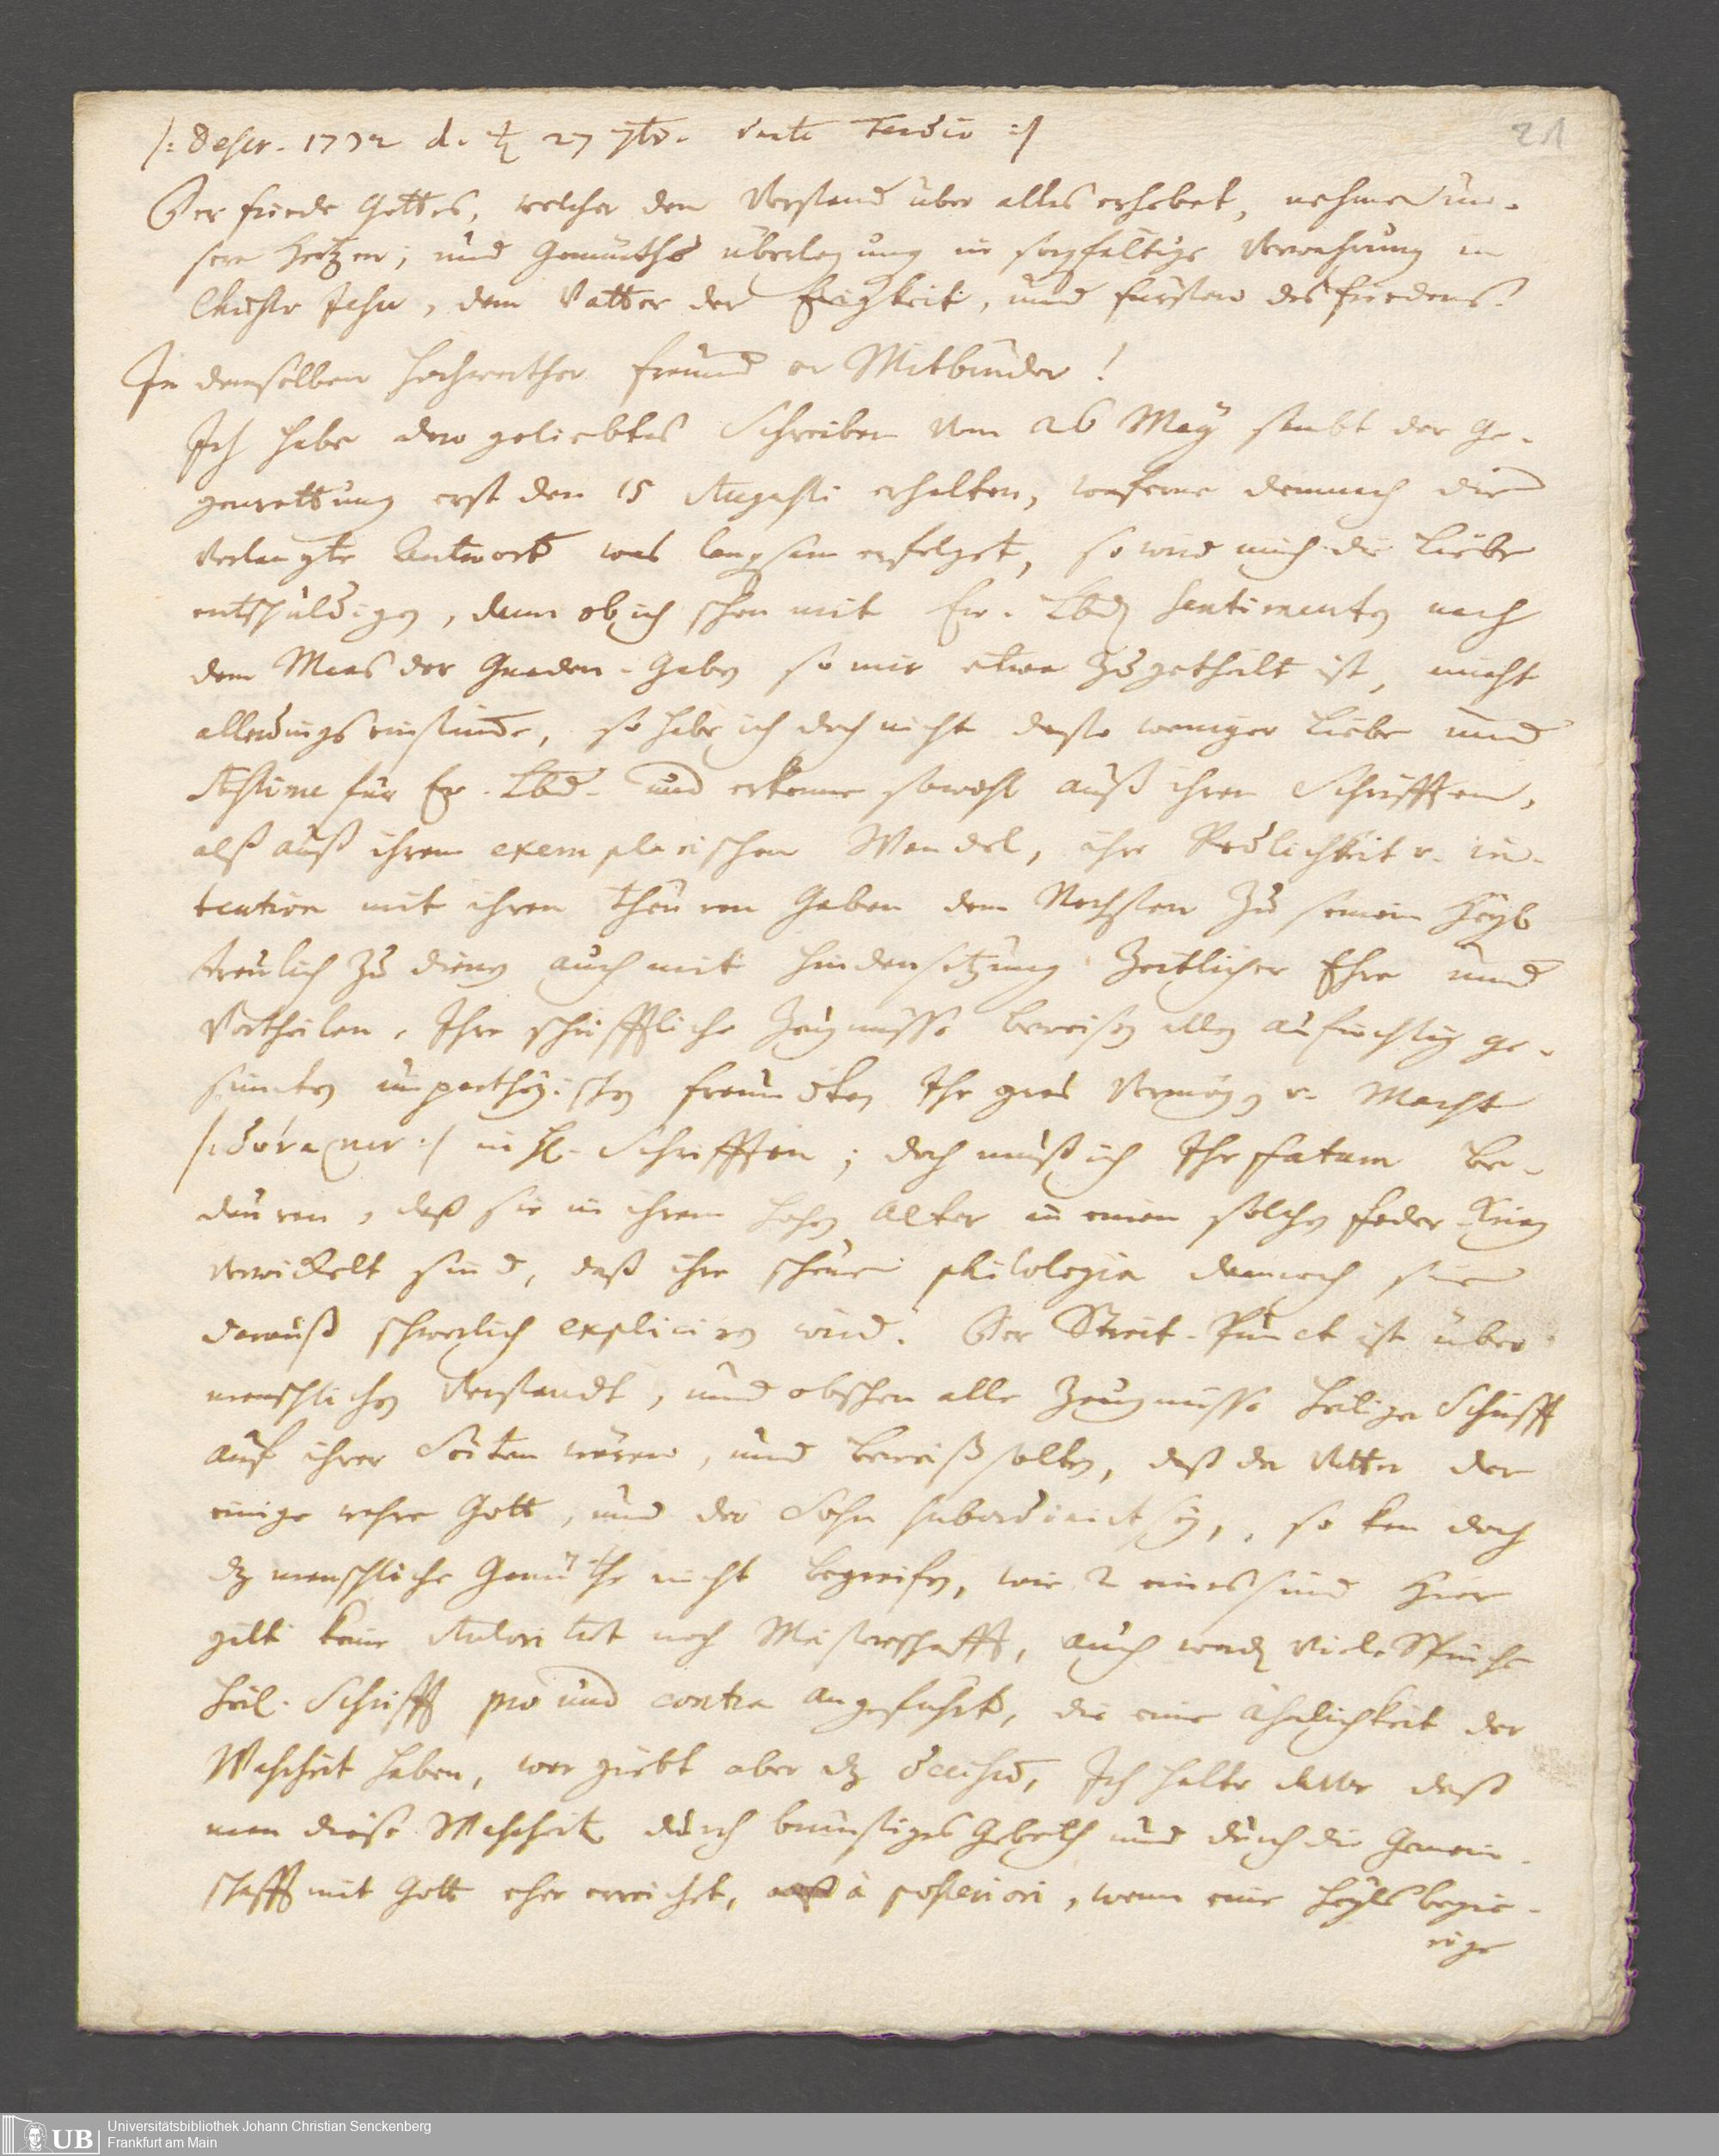 /: Descr. 1732 d. ♃ 27 7br. :/
21
Der friede Gottes, welcher den Verstand über alles erhebet, nehme un-
sere Hertzen, und Gemüths überlegung in sorgfältige Verwahrung in
Christo Jesu, dem Vatter der Ewigkeit, und fürsten des friedens.
In demselben hochwerther freund v. Mitbruder!
Ich habe dero geliebtes Schreiben vom 26 May sambt der Ge-
genrettung erst den 15 Augusti erhalten, woferne demnach die
verlangte Antwort was langsam erfolget, so wird mich die Liebe
entschuldigen, dann ob ich schon mit Ew. Lbd. Sentimenten nach
dem Maas der Gnaden-Gaben so mir etwa zugetheilt ist, nicht
allerdings einstimme, so habe ich doch nicht desto weniger Liebe und
Æstime für Ew. Lbd. und erkenne sowohl auß ihren Schrifften,
alß auß ihrem exemplarischen Wandel, ihre Redlichkeit v. in-
tention mit ihren theuren Gaben dem Nechsten zu seinem Heyl
treulich zu dienen auch mit hindensetzung zeitlicher Ehre und
Vortheilen. Ihre schrifftliche Zeugnisse beweisen allen aufrichtig ge-
sinnten unpartheyischen freunden Ihr gros Vermögen v. Macht
/: :/ in Hl. Schrifften; doch muß ich Ihr fatum be-
dauren, daß sie in ihrem hohen Alter in einen solchen feder-Krieg
verwickelt sind, daß ihre schöne philologia dannoch sie
darauß schwerlich expliciren wird. Der Streit-Punct ist über
menschlichen Verstandt, und obschon alle Zeugnisse heiliger Schrifft
auf ihrer Seiten wären, und beweissen solten, daß der Vatter der
einige wahre Gott, und der Sohn subordinirt sey, so kan doch
dz menschliche Gemüthe nicht begreifen, wie 2 eines sind Hier
gilt keine Autoritet noch Meisterschafft, auch werden viele Sprüche
heil. Schrifft pro und contra angeführt, die eine ähnlichkeit der
Wahrheit haben, wer giebt aber dz decisum, Ich halte davor daß
man diese Wahrheit durch brünstiges Gebeth und durch die Gemein-
schafft mit Gott eher erreichet, alß à posteriori, wenn eine heyls begie-
rige
Universitätsbibliothek Johann Christian Senckenberg
Frankfurt am Main
UB